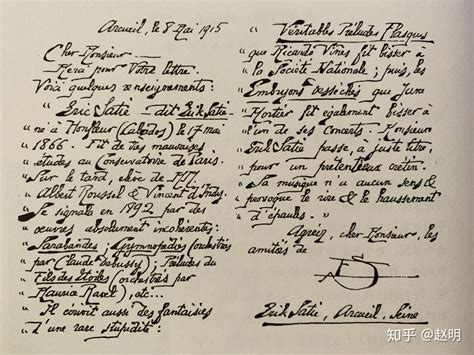 Arcueil, le 8 Mai 1915
Cher Monsieur
Merci pour Votre lettre.
Voici quelques renseignements:
" Eric Satie - dit Erik Satie -
" né à Honfleur (Calvados) le 17 mai
" 1866. Fit de très mauvaises
" études au Conservatoire de Paris.
" Sur le tard, élève de MM.
" Albert Roussel & Vincent d'Indy.
" Se signala en 1892 par des
" œuvres absolument incohérentes:
" Sarabandes; Gymnopédies (orchestrées
" par Claude Debussy); Préludes du
" Fils des Etoiles (orchestrés par
" Maurice Ravel), etc...
" Il écrivit aussi des fantaisies
" d'une rare stupidité:
" Véritables Préludes Flasques
" que Ricardo Viñes fit bisser à
" la Société Nationale; puis, les
" Embryons desséchés que Jane
" Mortier fit également bisser à
" l'un de ses Concerts. Monsieur
" Erik Satie passe, à juste titre,
" pour un prétentieux crétin.
" Sa musique n'a aucun sens &
" provoque le rire & le haussement
" d'épaules."
Agréez, cher Monsieur, les
amitiés de
Erik Satie, Arcueil, Seine
知乎 @赵明